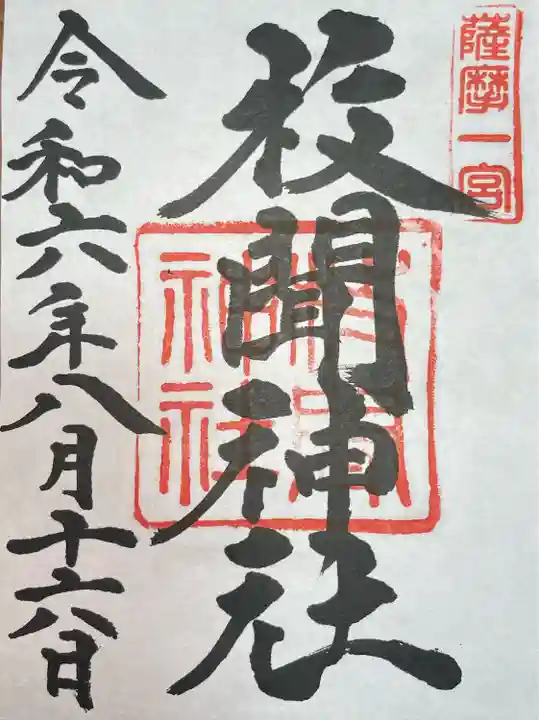 薩摩一宮
枚聞神社
枚聞
神社
令和六年八月十六日